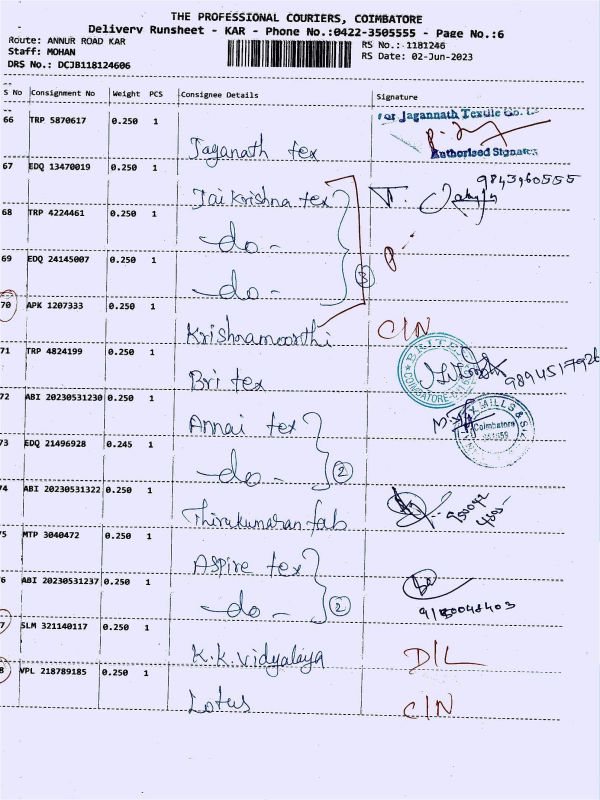 THE PROFESSIONAL COURIERS, COIMBATORE
Delivery Runsheet - KAR - Phone No.:0422-3505555 - Page No.:6
Route: ANNUR ROAD KAR
RS No.: 1181246
Staff: MOHAN
RS Date: 02-Jun-2023
DRS No.: DCJB118124606
S No Consignment No Weight PCS Consignee Details Signature
66 TRP 5870617 0.250 1
For Jagannath Textile Co.
Jaganath tex
Authorised Signatory
67 EDQ 13470019 0.250 1
9843960555
Jaikrishna tex
68 TRP 4224461 0.250 1
do -
69 EDQ 24145007 0.250 1
do -
3
70 APK 1207333 0.250 1
Krishnamoorthi C/N
71 TRP 4824199 0.250 1
Bri tex
9894517926
72 ABI 20230531230 0.250 1
Annai tex
Coimbatore
73 EDQ 21496928 0.245 1
do - 2
74 ABI 20230531322 0.250 1
Thirukumaran fab
75 MTP 3040472 0.250 1
Aspire tex
6 ABI 20230531237 0.250 1
do - 2
7 SLM 321140117 0.250 1
K.K. Vidyalaya D/L
8 VPL 218789185 0.250 1
Lotus C/N